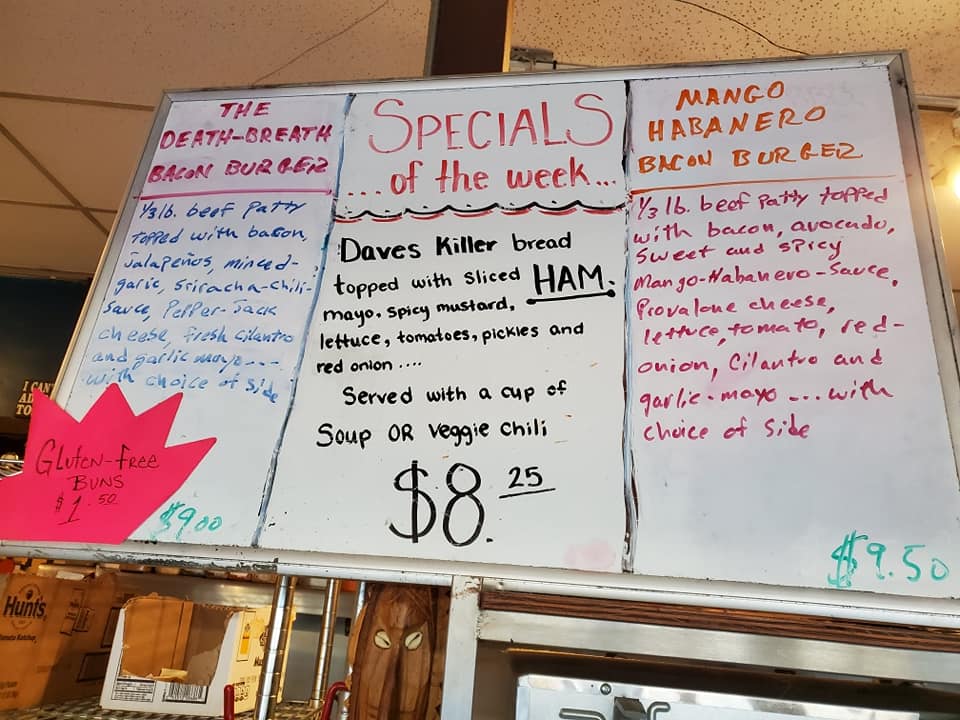 THE
DEATH-BREATH
BACON BURGER
1/3 lb. beef patty
topped with bacon,
Jalapeños, minced-
garlic, Sriracha-Chili-
Sauce, Pepper-Jack
cheese, fresh Cilantro
and garlic mayo----
with choice of side
$9.00
Gluten-free
BUNS
$1.50
SPECIALS
...of the week...
Daves Killer bread
topped with sliced HAM.
mayo, spicy mustard,
lettuce, tomatoes, pickles and
red onion ....
Served with a cup of
Soup OR Veggie Chili
$8.25
MANGO
HABANERO
BACON BURGER
1/3 lb. beef patty topped
with bacon, avocado,
Sweet and spicy
Mango-Habanero-Sauce,
Provalone cheese,
lettuce, tomato, red-
onion, Cilantro and
garlic-mayo ... with
choice of side
$9.50
I CAN'T
AD
TO
Hunt's
Tomato Ketchup